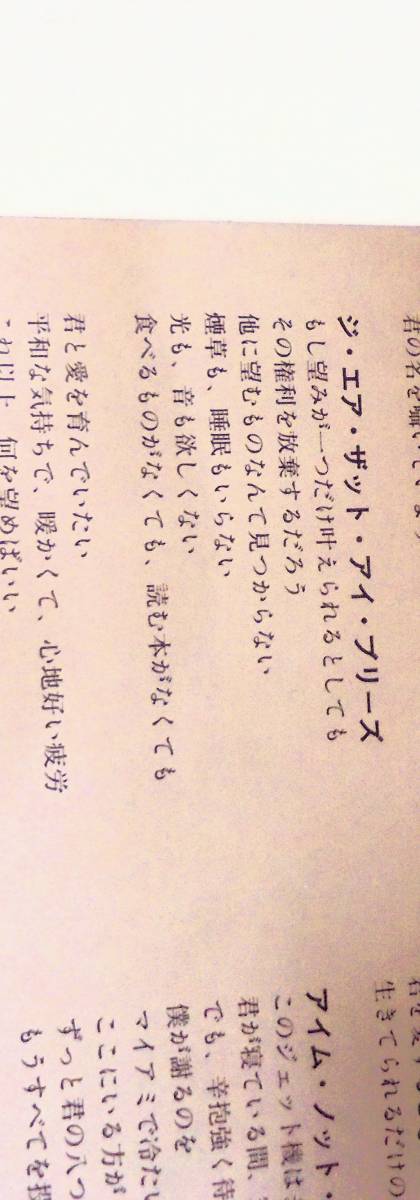 君の名を囁いています
ジ・エア・ザット・アイ・ブリーズ
もし望みが一つだけ叶えられるとしても
その権利を放棄するだろう
他に望むものなんて見つからない
煙草も、睡眠もいらない
光も、音も欲しくない
食べるものがなくても、読む本がなくても
君と愛を育んでいたい
平和な気持ちで、暖かくて、心地好い疲労
これ以上 何を望めばいい
生きてられるだけの
アイム・ノット・
このジェット機は
君が寝ている間、
でも、辛抱強く待
僕が謝るのを
マイアミで冷たい
ここにいる方が
ずっと君の八つ
もうすべてを投